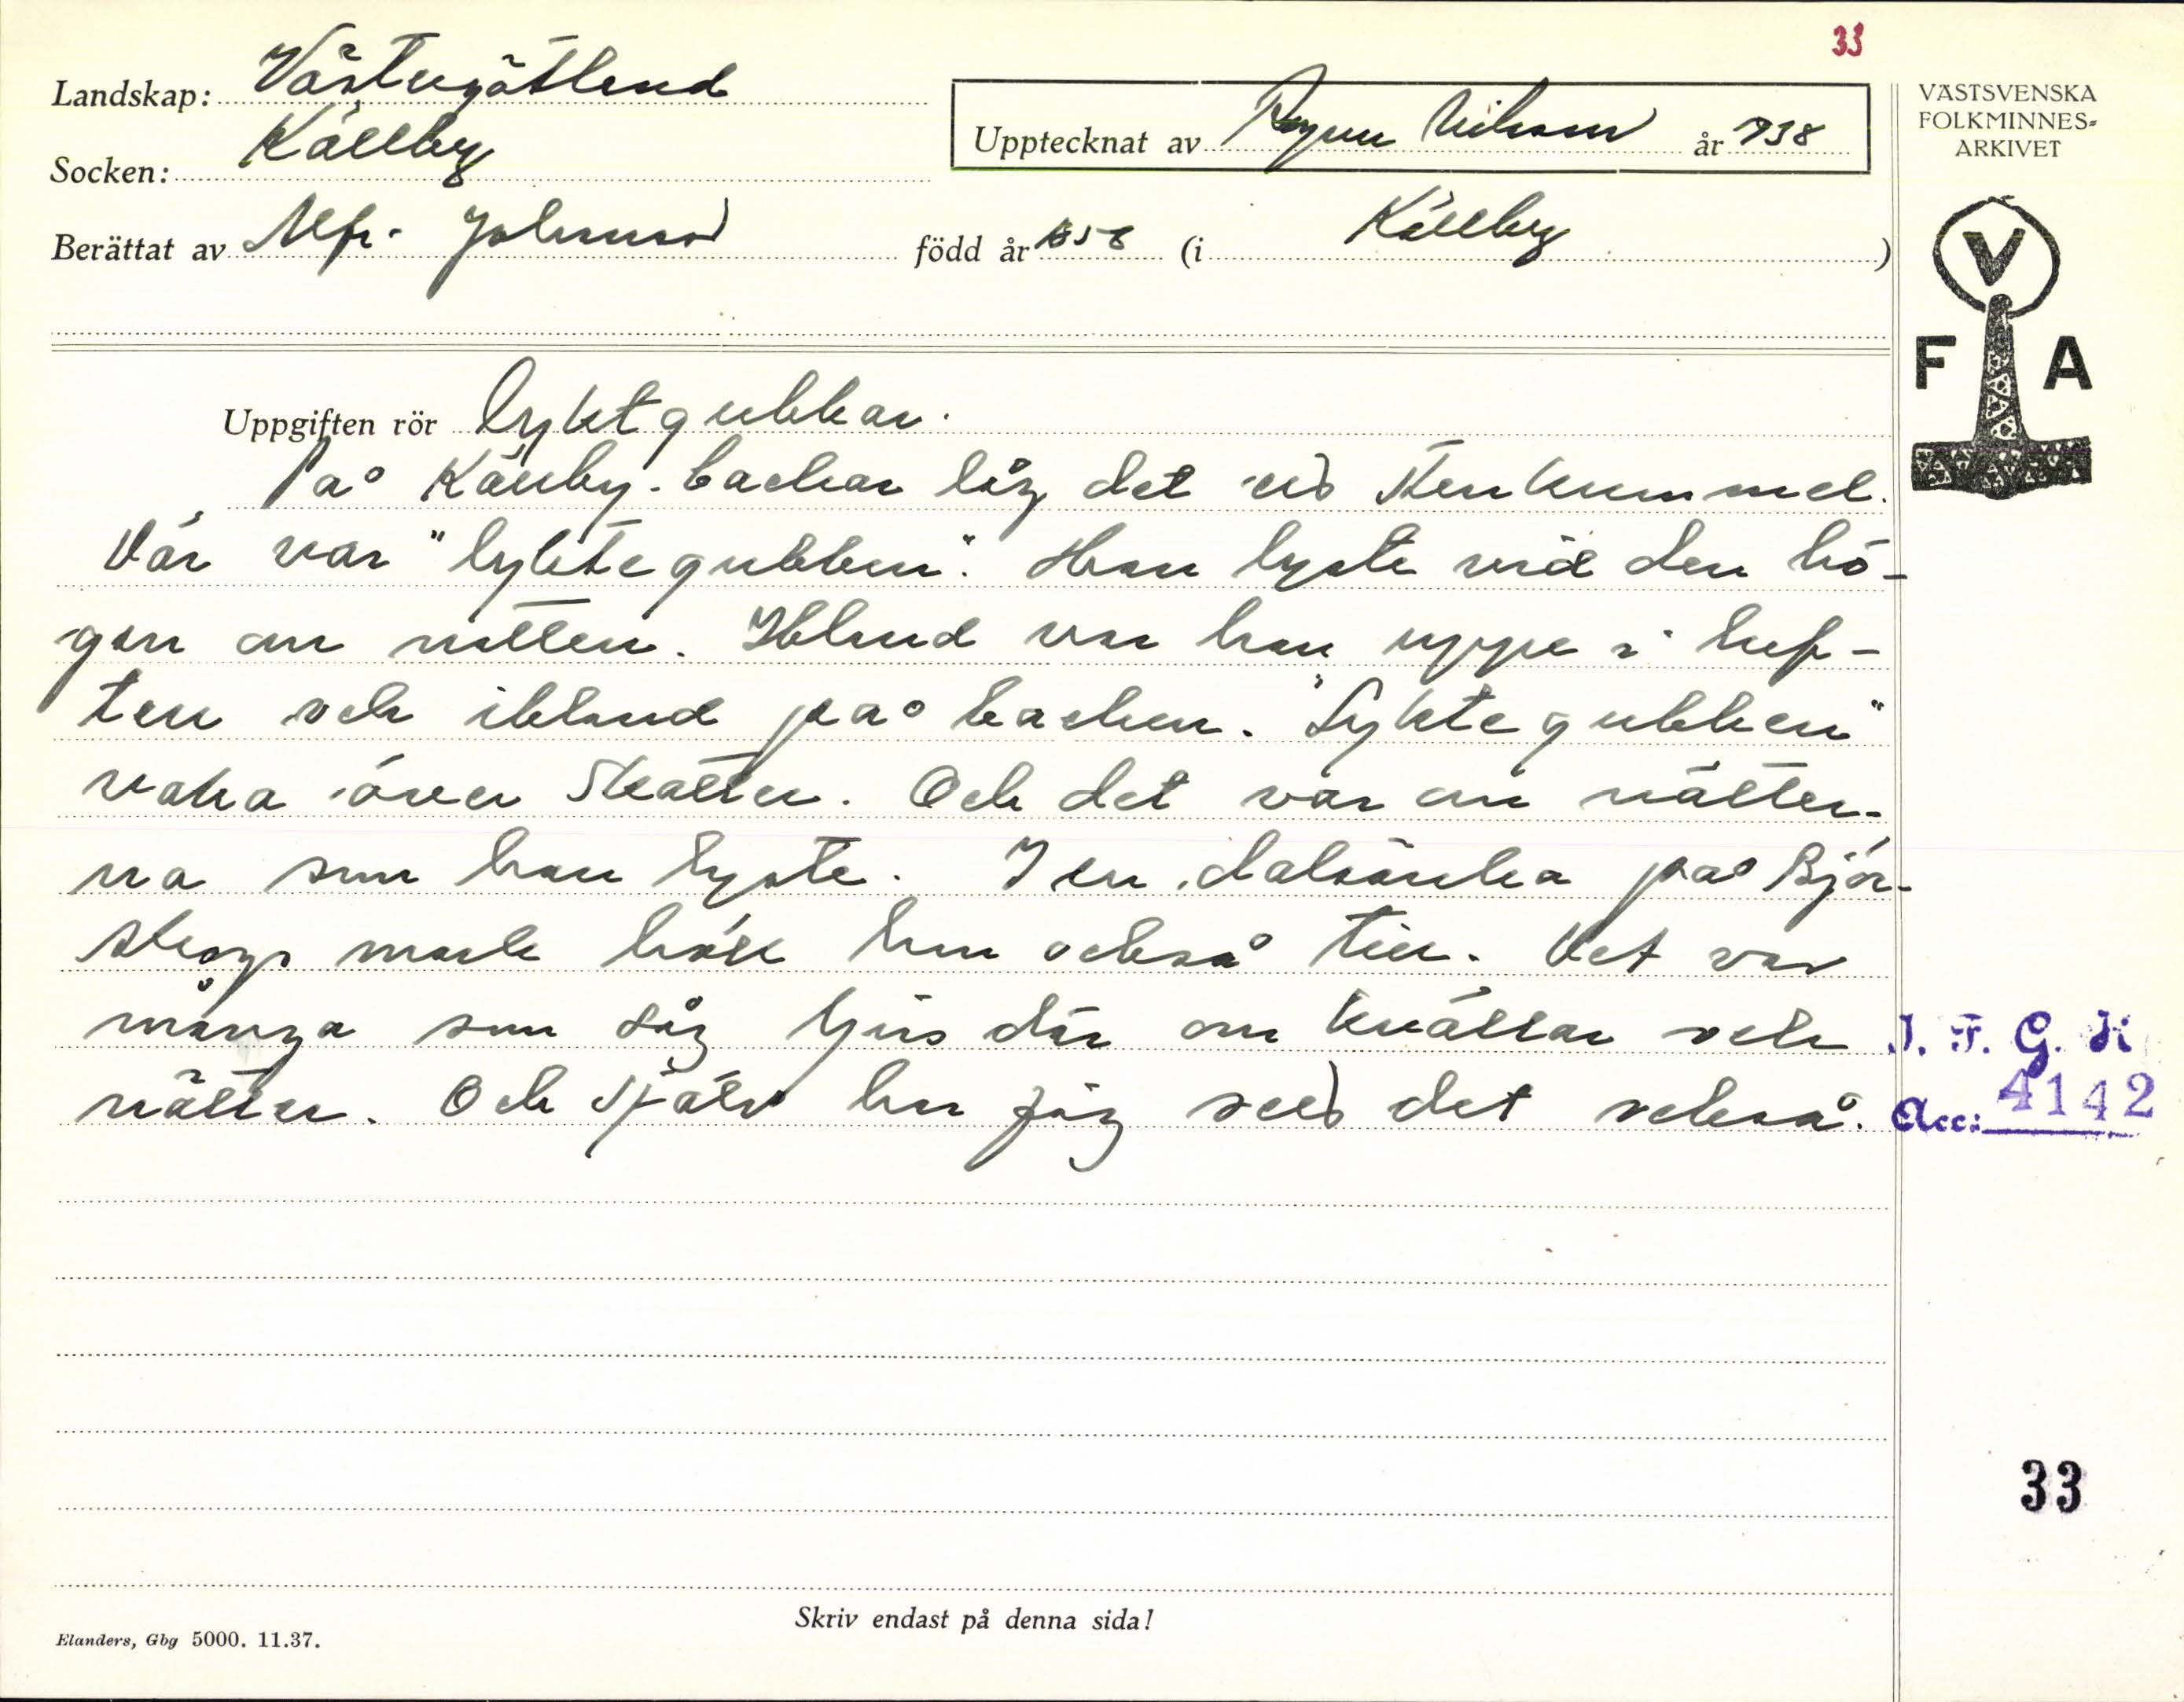 33
Landskap: Västergötland
Socken: Källby
Upptecknat av Ragnar Nilsson år 1938
Berättat av Alfr. Johansson född år 1858 (i Källby)
VÄSTSVENSKA
FOLKMINNES-
ARKIVET
V
F A
Uppgiften rör lyktgubbar.
På Källby-backar låg det ett stenkummel.
Där var "lyktegubben". Han lyste vid den hö-
gen om natten. Ibland var han uppe i luf-
ten och ibland på backen. "Lyktegubben"
vaka över skatter. Och det var om nätter-
na som han lyste. I en dalsänka på Björ-
skogs mark höll han också till. Det var
många som såg ljus där om kvällar och
nätter. Och själv har jag sett det också.
I. F. G. H:
Acc: 4142
33
Skriv endast på denna sida!
Elanders, Gbg 5000. 11.37.